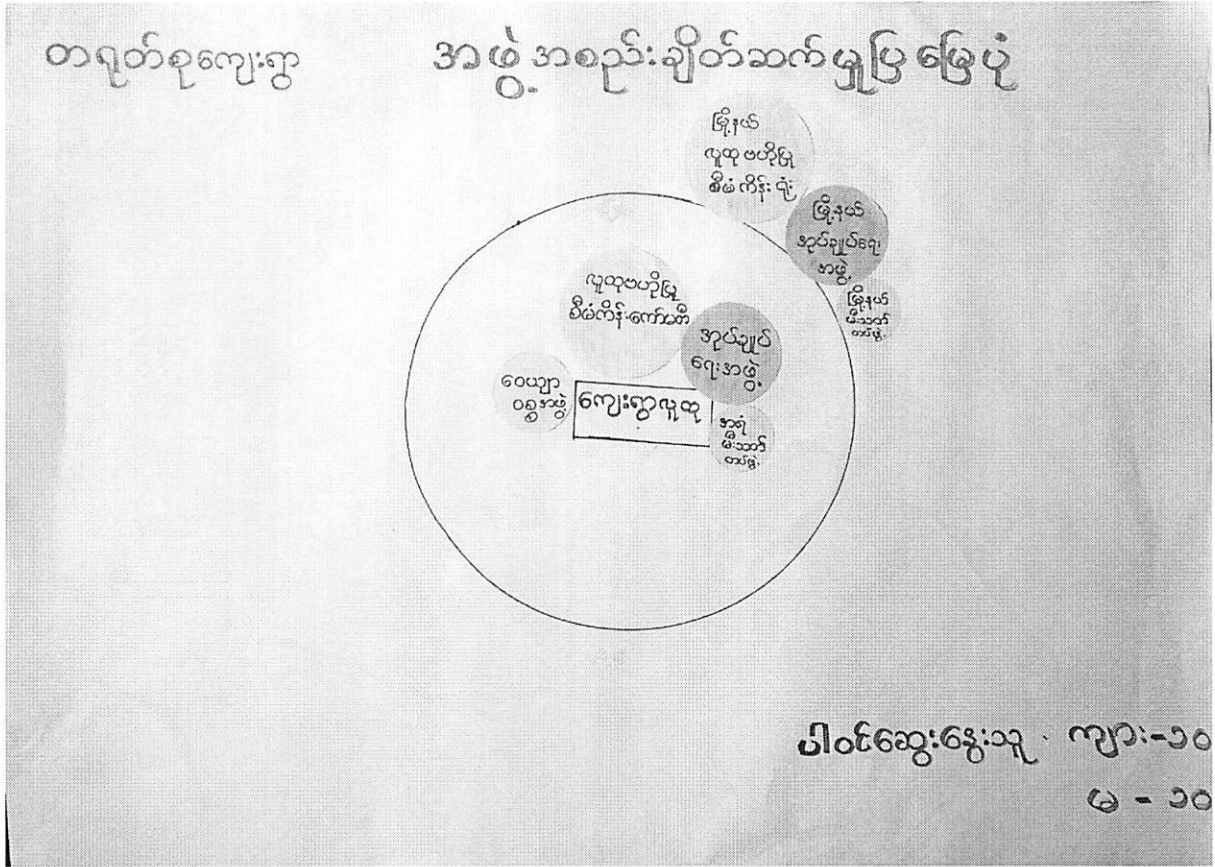 တရုတ်စုကျေးရွာ
အဖွဲ့အစည်းချိတ်ဆက်မှုပြမြေပုံ
မြို့နယ်
လူထုဗဟိုပြု
စီမံကိန်းရုံး
မြို့နယ်
အုပ်ချုပ်ရေး
အဖွဲ့
မြို့နယ်
မီးသတ်
တပ်ဖွဲ့
လူထုဗဟိုပြု
စီမံကိန်းကော်မတီ
အုပ်ချုပ်
ရေးအဖွဲ့
ဝေယျာ
ဝစ္စအဖွဲ့
ကျေးရွာလူထု
အရံ
မီးသတ်
တပ်ဖွဲ့
ပါဝင်ဆွေးနွေးသူ - ကျား-၁၀
မ - ၁၀